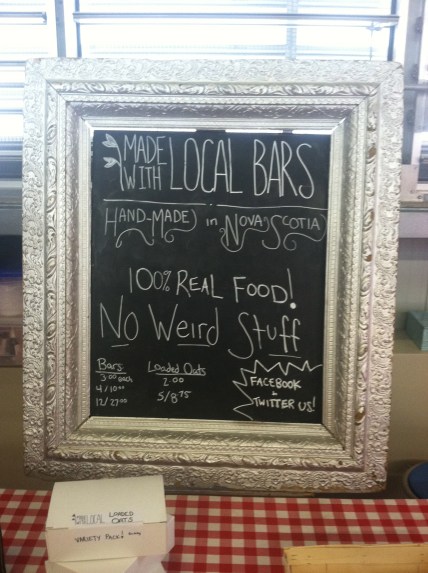 MADE
WITH LOCAL BARS
HAND-MADE in NOVA SCOTIA
100% REAL FOOD!
NO WEIRD STUFF
Bars
3.00 each
4/10.00
12/27.00
Loaded Oats
2.00
5/8.75
FACEBOOK
&
TWITTER US!
LOCAL LOADED
OATS
VARIETY PACK!